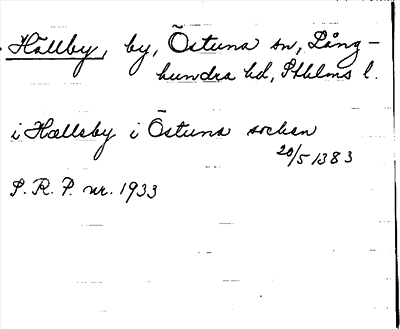 Hällby, by, Östuna sn, Lång-
hundra hd, Sthlms l.
i Hællæby i Östuna socken
20/5 1383
S. R. P. nr. 1933